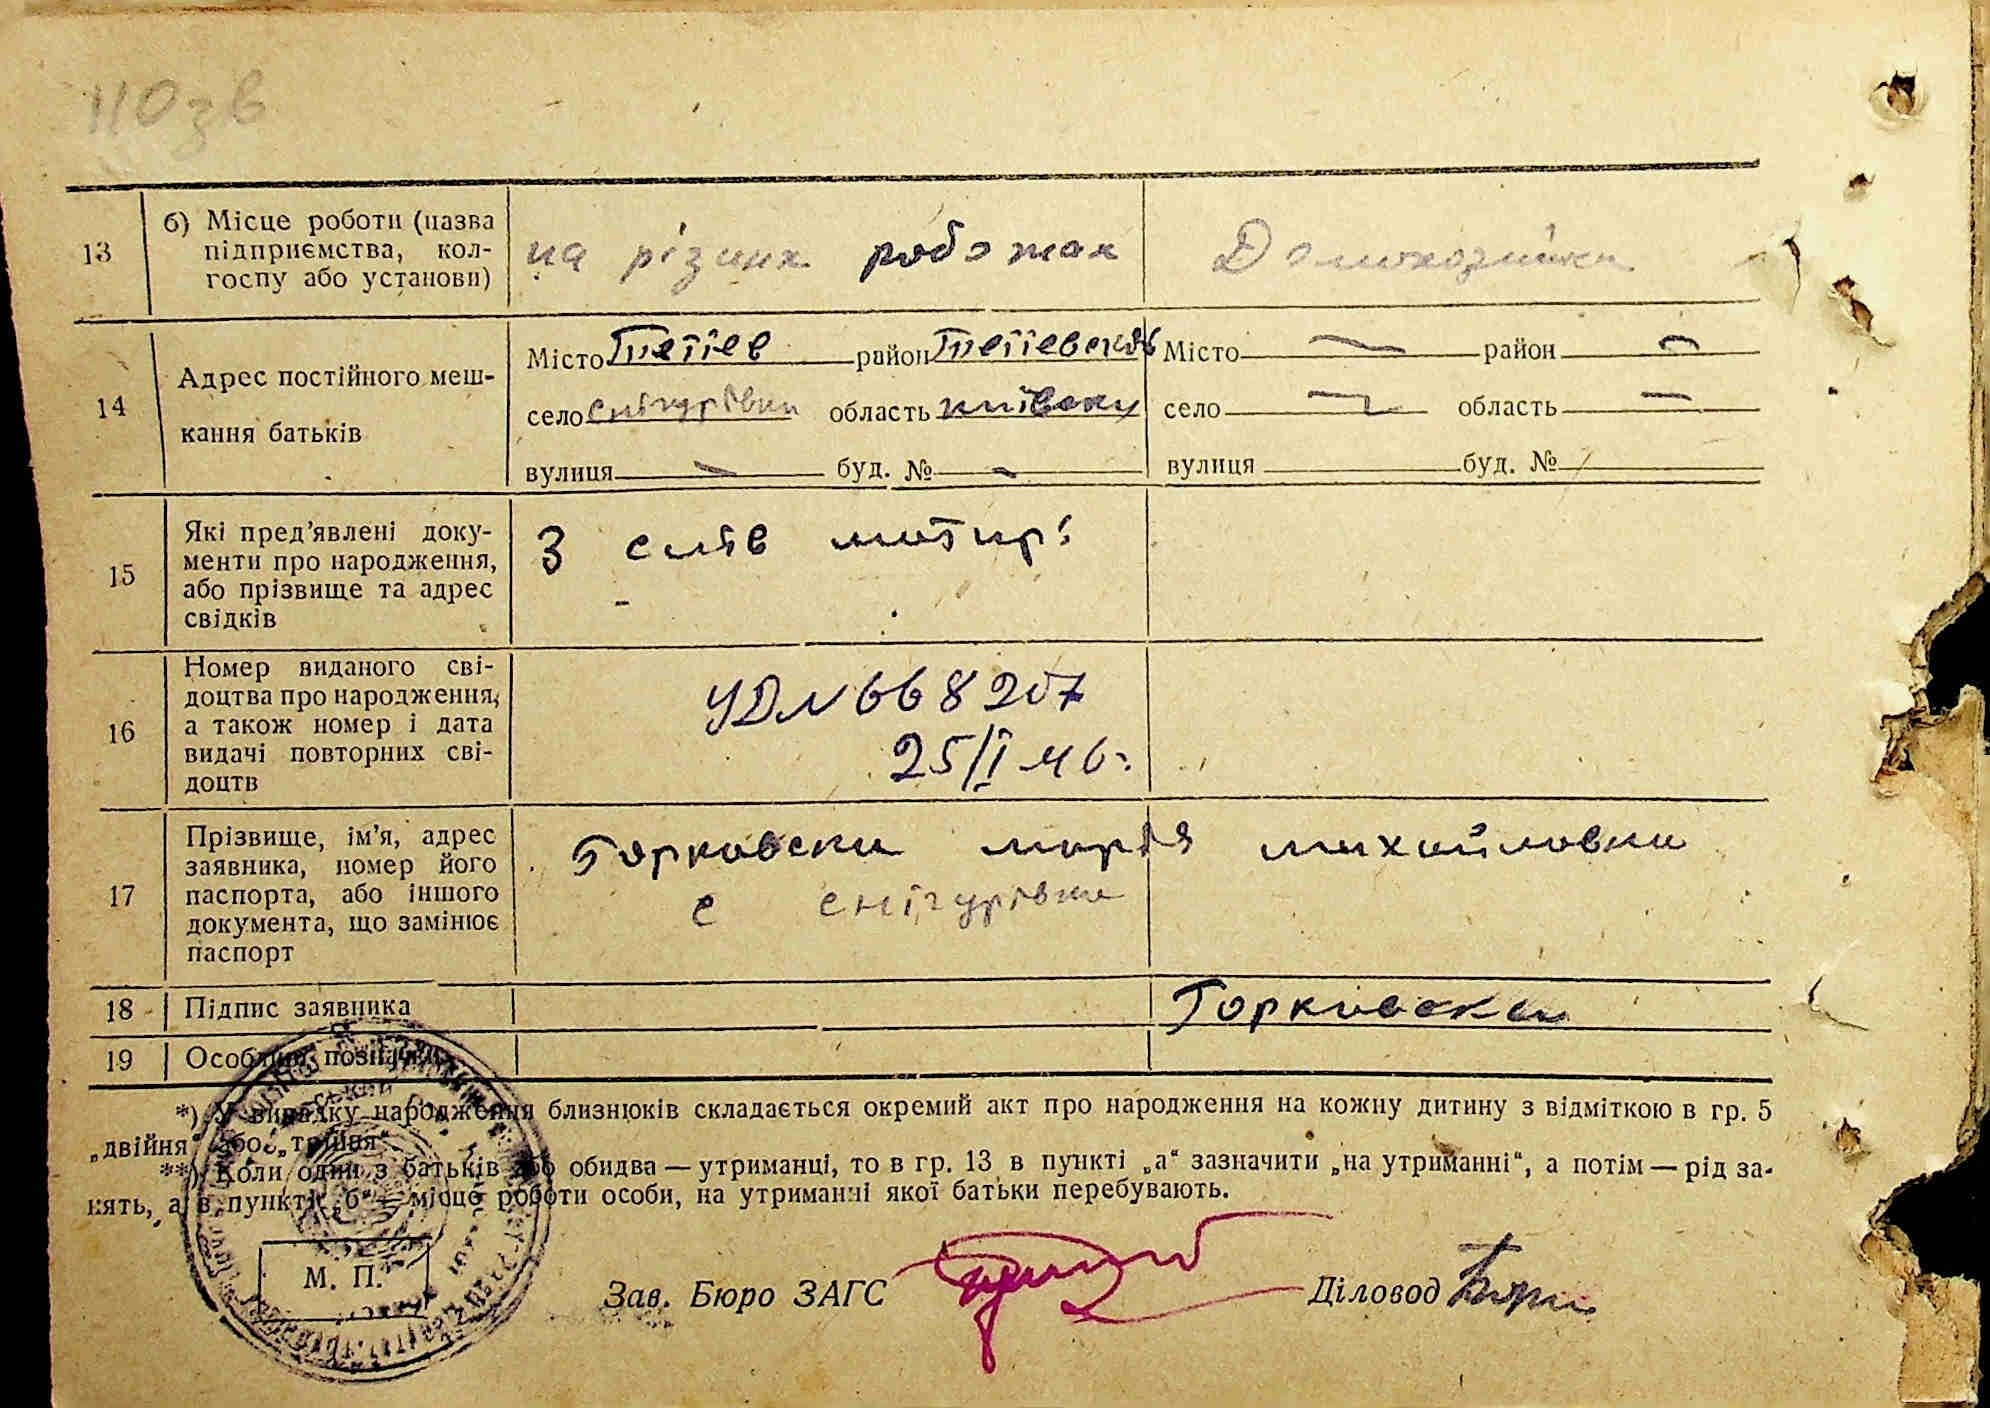 110 зв
13
б) Місце роботи (назва
підприємства, кол-
госпу або установи)
на різних роботах
Домохозяйка
14
Адрес постійного меш-
кання батьків
Місто Тетіев район Тетіевский
село Снігурівка область київску
вулиця буд. №
Місто район
село область
вулиця буд. №
15
Які пред’явлені доку-
менти про народження,
або прізвище та адрес
свідків
З слів матирі
16
Номер виданого сві-
доцтва про народження,
а також номер і дата
видачі повторних сві-
доцтв
УД № 668207
25/I 46 г.
17
Прізвище, ім’я, адрес
заявника, номер його
паспорта, або іншого
документа, що замінює
паспорт
Горковска марія михайловна
с снігурівка
18
Підпис заявника
Горковска
19
Особливі позначки
*) У випадку народження близнюків складається окремий акт про народження на кожну дитину з відміткою в гр. 5
„двійня“ або „трійня“.
**) Коли один з батьків або обидва — утриманці, то в гр. 13 в пункті „а“ зазначити „на утриманні“, а потім — рід за-
нять, а в пункті „б“ — місце роботи особи, на утриманні якої батьки перебувають.
М. П.
Зав. Бюро ЗАГС
Діловод